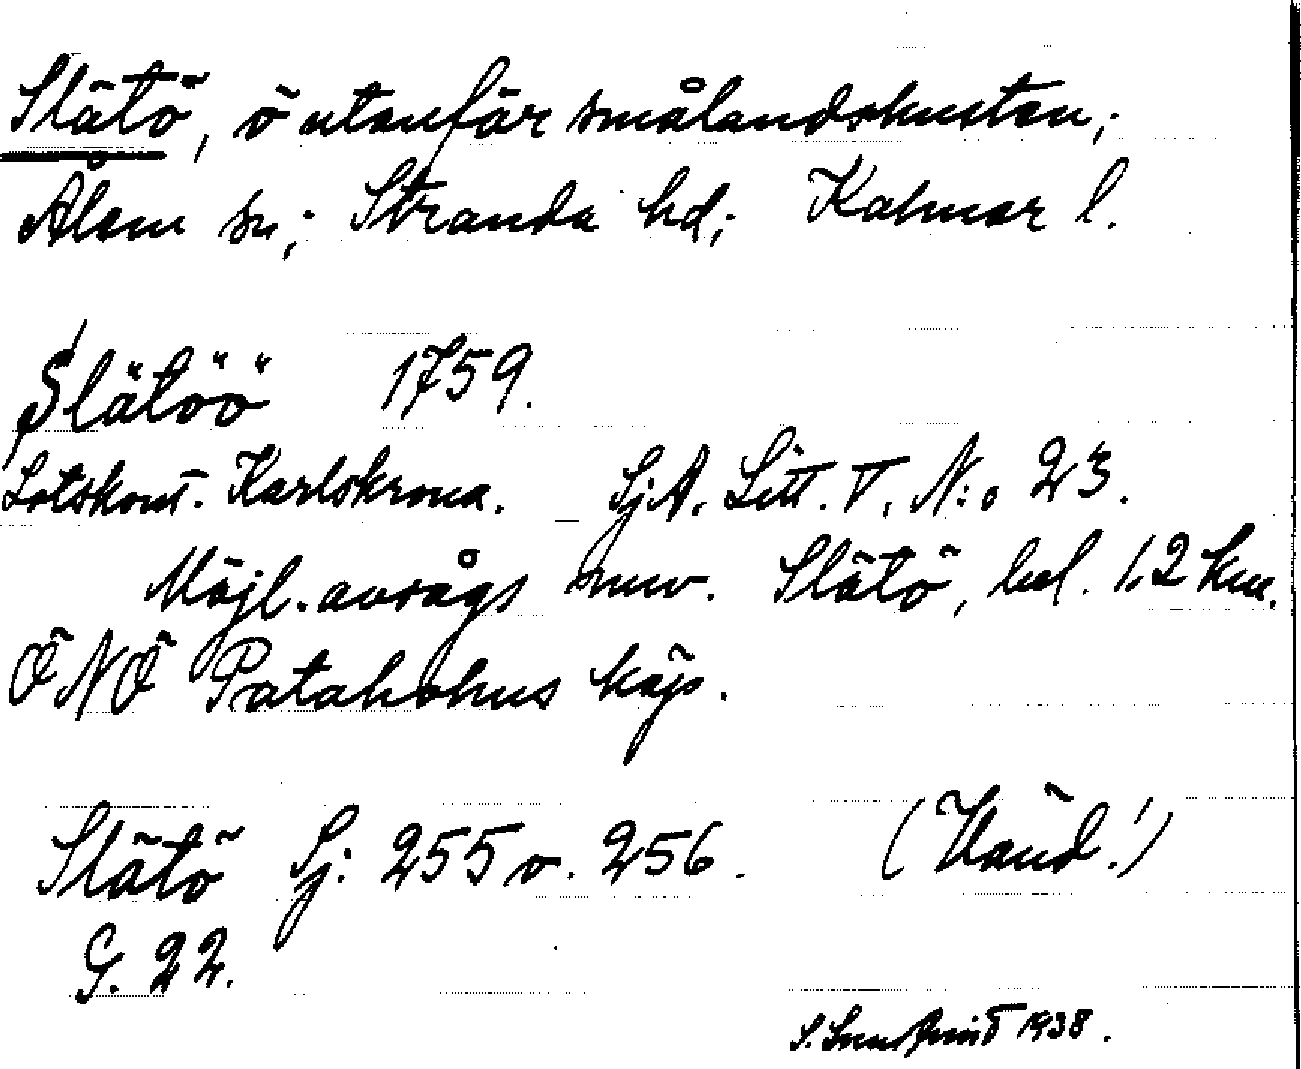 Slätö, ö utanför smålandskusten;
Ålem sn; Stranda hd; Kalmar l.
Slätöö 1759.
Lotskont. Karlskrona. _ Sj.A. Litt. V. N:o 23.
Möjl. avsågs nuv. Slätö, bel. 1,2 km.
ÖNÖ Pataholms köp.
Slätö Sj: 255 o. 256. (Vänd!)
G. 22.
S. 1938.